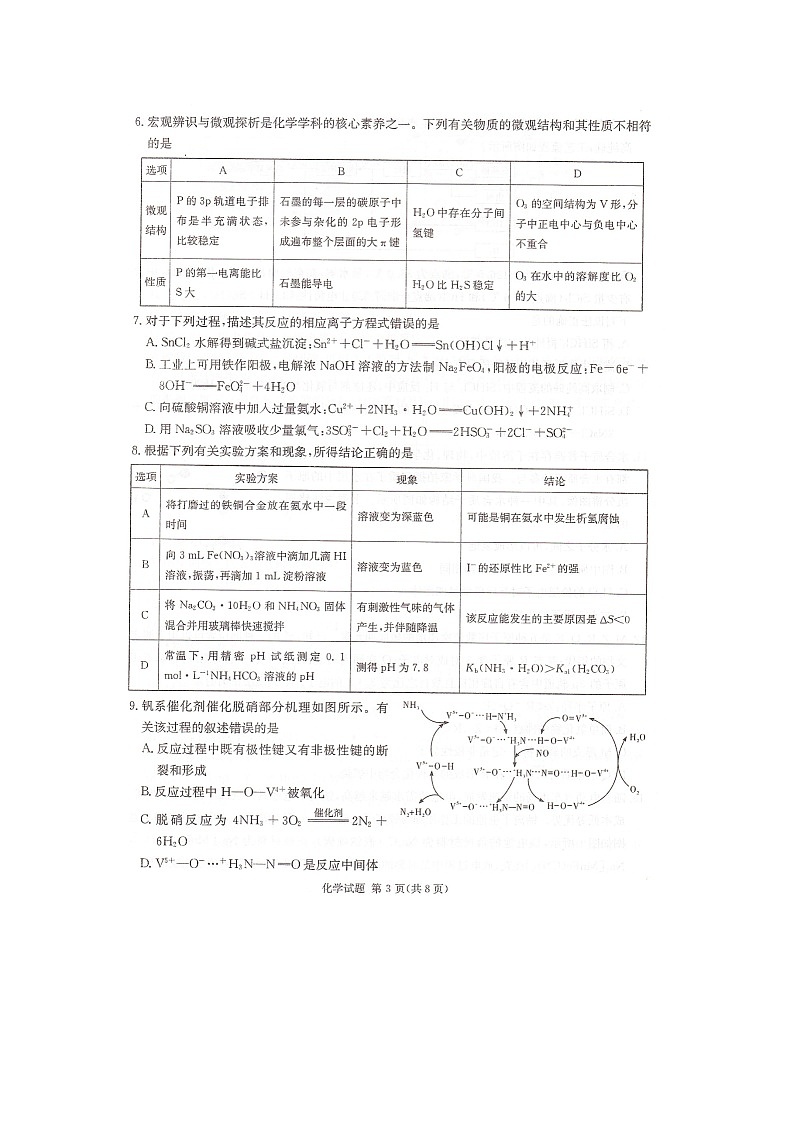 6. 宏观辨识与微观探析是化学学科的核心素养之一。下列有关物质的微观结构和其性质不相符
的是
选项 A B C D
微观结构
P 的 3p 轨道电子排
布是半充满状态,
比较稳定
石墨的每一层的碳原子中
未参与杂化的 2p 电子形
成遍布整个层面的大 π 键
H₂O 中存在分子间
氢键
O₃ 的空间结构为 V 形,分
子中正电中心与负电中心
不重合
性质
P 的第一电离能比
S 大
石墨能导电
H₂O 比 H₂S 稳定
O₃ 在水中的溶解度比 O₂
的大
7. 对于下列过程,描述其反应的相应离子方程式错误的是
A. SnCl₂ 水解得到碱式盐沉淀:Sn²⁺+Cl⁻+H₂O══Sn(OH)Cl↓+H⁺
B. 工业上可用铁作阳极,电解浓 NaOH 溶液的方法制 Na₂FeO₄,阳极的电极反应:Fe−6e⁻+
8OH⁻══FeO₄²⁻+4H₂O
C. 向硫酸铜溶液中加入过量氨水:Cu²⁺+2NH₃·H₂O══Cu(OH)₂↓+2NH₄⁺
D. 用 Na₂SO₃ 溶液吸收少量氯气:3SO₃²⁻+Cl₂+H₂O══2HSO₃⁻+2Cl⁻+SO₄²⁻
8. 根据下列有关实验方案和现象,所得结论正确的是
选项 实验方案 现象 结论
A
将打磨过的铁铜合金放在氨水中一段
时间
溶液变为深蓝色
可能是铜在氨水中发生析氢腐蚀
B
向 3 mL Fe(NO₃)₃溶液中滴加几滴 HI
溶液,振荡,再滴加 1 mL 淀粉溶液
溶液变为蓝色
I⁻ 的还原性比 Fe²⁺ 的强
C
将 Na₂CO₃·10H₂O 和 NH₄NO₃ 固体
混合并用玻璃棒快速搅拌
有刺激性气味的气体
产生,并伴随降温
该反应能发生的主要原因是 ΔS<0
D
常温下,用精密 pH 试纸测定 0.1
mol·L⁻¹NH₄HCO₃ 溶液的 pH
测得 pH 为 7.8
K_b(NH₃·H₂O)>K_a1(H₂CO₃)
9. 钒系催化剂催化脱硝部分机理如图所示。有
关该过程的叙述错误的是
A. 反应过程中既有极性键又有非极性键的断
裂和形成
B. 反应过程中 H—O—V⁴⁺被氧化
C. 脱硝反应为 4NH₃+3O₂ ══催化剂══ 2N₂+
6H₂O
D. V⁵⁺—O⁻…⁺H₃N—N═O 是反应中间体
NH₃
V⁵⁺-O⁻…H-N⁺H₃
O=V⁵⁺
V⁵⁺-O⁻…⁺H₃N…H-O-V⁴⁺
H₂O
NO
V⁵⁺-O-H
V⁵⁺-O⁻…⁺H₃N…N=O…H-O-V⁴⁺
O₂
N₂+H₂O
V⁵⁺-O⁻…⁺H₃N-N=O
H-O-V⁴⁺
化学试题 第 3 页(共 8 页)